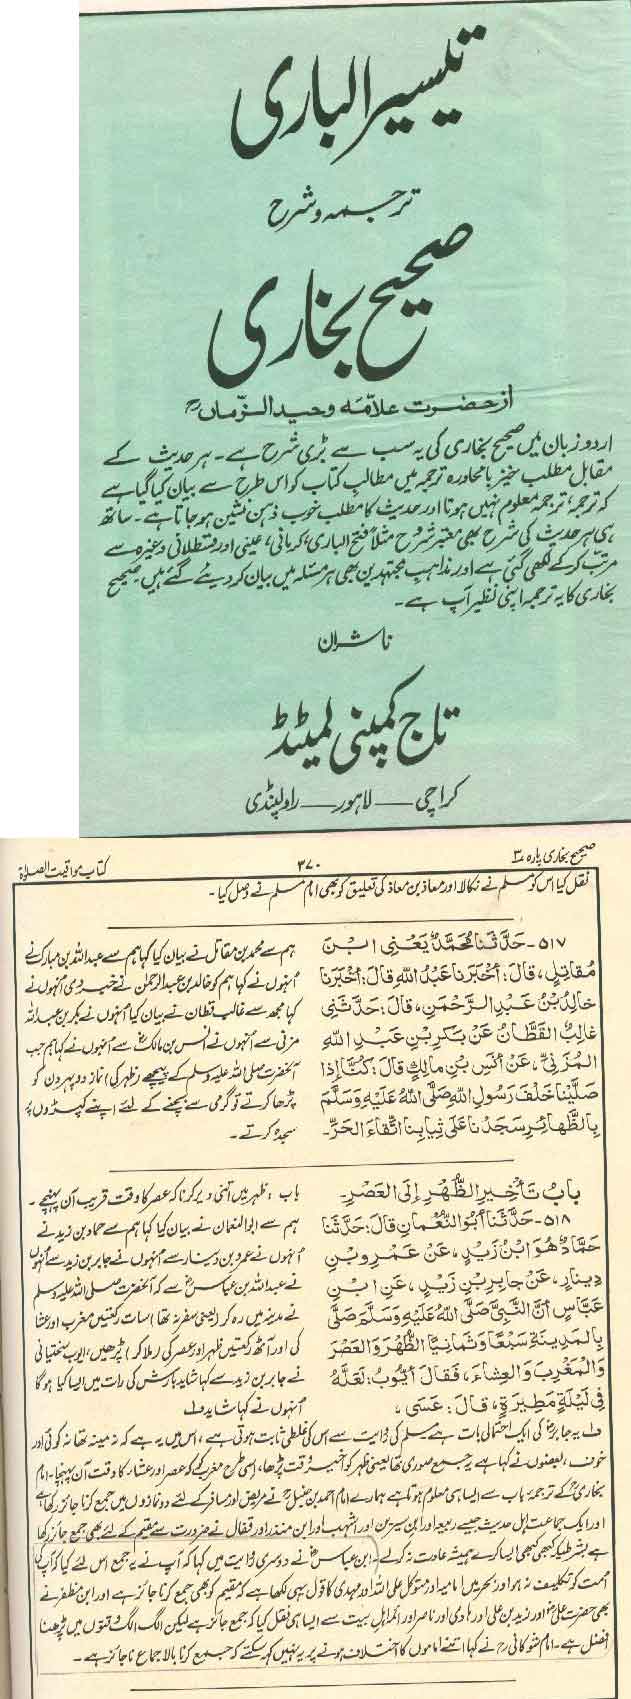 تیسیر الباری
ترجمہ و شرح
صحیح بخاری
از حضرت علامہ وحید الزماںؒ
اردو زبان میں صحیح بخاری کی یہ سب سے بڑی شرح ہے۔ ہر حدیث کے
مقابل مطلب خیز بامحاورہ ترجمہ میں مطالب کتاب کو اس طرح سے بیان کیا گیا ہے
کہ ترجمہ، ترجمہ معلوم نہیں ہوتا اور حدیث کا مطلب خوب ذہن نشین ہو جاتا ہے۔ ساتھ
ہی ہر حدیث کی شرح بھی معتبر شروح مثلاً فتح الباری، کرمانی، عینی اور قسطلانی وغیرہ سے
مرتب کر کے لکھی گئی ہے اور مذاہب مجتہدین بھی ہر مسئلہ میں بیان کر دیئے گئے ہیں صحیح
بخاری کا یہ ترجمہ اپنی نظیر آپ ہے۔
ناشران
تاج کمپنی لمیٹڈ
کراچی — لاہور — راولپنڈی
صحیح بخاری پارہ ۳
۳۷۰
کتاب مواقیت الصلاۃ
نقل کیا اس کو مسلم نے نکالا اور معاذ بن معاذ کی تعلیق کو بھی امام مسلم نے وصل کیا۔
۵۱۷- حَدَّثَنَا مُحَمَّدٌ يَعْنِي ابْنَ
مُقَاتِلٍ، قَالَ: أَخْبَرَنَا عَبْدُ اللهِ قَالَ: أَخْبَرَنَا
خَالِدُ بْنُ عَبْدِ الرَّحْمَنِ، قَالَ: حَدَّثَنِي
غَالِبُ الْقَطَّانُ عَنْ بَكْرِ بْنِ عَبْدِ اللهِ
الْمُزَنِيِّ، عَنْ أَنَسِ بْنِ مَالِكٍ قَالَ: كُنَّا إِذَا
صَلَّيْنَا خَلْفَ رَسُولِ اللهِ صَلَّى اللهُ عَلَيْهِ وَسَلَّمَ
بِالظَّهَائِرِ سَجَدْنَا عَلَى ثِيَابِنَا اتِّقَاءَ الْحَرِّ۔
ہم سے محمد بن مقاتل نے بیان کیا کہا ہم سے عبد اللہ بن مبارک نے
انہوں نے کہا ہم کو خالد بن عبد الرحمٰن نے خبر دی انہوں نے
کہا مجھ سے غالب قطان نے بیان کیا انہوں نے بکر بن عبد اللہ
مزنی سے انہوں نے انس بن مالکؓ سے انہوں نے کہا ہم جب
آنحضرت صلی اللہ علیہ وسلم کے پیچھے ظہر کی نماز دوپہر دن کو
پڑھا کرتے تو گرمی سے بچنے کے لئے اپنے کپڑوں پر
سجدہ کرتے۔
بَابُ تَأْخِيرِ الظُّهْرِ إِلَى الْعَصْرِ۔
۵۱۸- حَدَّثَنَا أَبُو النُّعْمَانِ قَالَ: حَدَّثَنَا
حَمَّادٌ هُوَ ابْنُ زَيْدٍ، عَنْ عَمْرِو بْنِ
دِينَارٍ، عَنْ جَابِرِ بْنِ زَيْدٍ، عَنِ ابْنِ
عَبَّاسٍ أَنَّ النَّبِيَّ صَلَّى اللهُ عَلَيْهِ وَسَلَّمَ صَلَّى
بِالْمَدِينَةِ سَبْعًا وَثَمَانِيًا الظُّهْرَ وَالْعَصْرَ
وَالْمَغْرِبَ وَالْعِشَاءَ، فَقَالَ أَيُّوبُ: لَعَلَّهُ
فِي لَيْلَةٍ مَطِيرَةٍ، قَالَ: عَسَى،
باب : ظہر میں اتنی دیر کرنا کہ عصر کا وقت قریب آن پہنچے۔
ہم سے ابو النعمان نے بیان کیا کہا ہم سے حماد بن زید نے
انہوں نے عمرو بن دینار سے انہوں نے جابر بن زید سے انہوں
نے عبد اللہ بن عباسؓ سے کہ آنحضرت صلی اللہ علیہ وسلم
نے مدینہ میں رہ کر (یعنی سفر نہ تھا) سات رکعتیں مغرب اور عشا
کی اور آٹھ رکعتیں ظہر اور عصر کی (ملا کر) پڑھیں، ایوب سختیانی
نے جابر بن زید سے کہا شاید بارش کی رات میں ایسا کیا ہوگا
انہوں نے کہا شاید ف
ف یہ جابرؓ کی ایک احتمالی بات ہے مسلم کی روایت سے اس کی غلطی ثابت ہوتی ہے، اس میں یہ ہے کہ نہ مینہ تھا نہ کوئی اور
خوف، بعضوں نے کہا ہے یہ جمع صوری تھا یعنی ظہر کو اخیر وقت پڑھا، اسی طرح مغرب کو کہ عصر اور عشا کا وقت آن پہنچا۔ امام
بخاریؒ کے ترجمہ باب سے ایسا ہی معلوم ہوتا ہے ہمارے امام احمد بن حنبلؒ نے مریض اور مسافر کے لئے دو نمازوں میں جمع کرنا جائز رکھا ہے
اور ایک جماعت اہل حدیث جیسے ربیعہ اور ابن سیرین اور اشہب اور ابن منذر اور قفال نے ضرورت سے مقیم کے لئے بھی جمع جائز رکھا
ہے بشرطیکہ کبھی کبھی ایسا کرے ہمیشہ عادت نہ کر لے۔ ابن عباسؓ نے دوسری روایت میں کہا کہ آپ نے یہ جمع اس لئے کیا کہ آپ کی
امت کو تکلیف نہ ہو اور بحر میں امامیہ اور متوکل علی اللہ اور مہدی کا قول یہی لکھا ہے کہ مقیم کو بھی جمع کرنا جائز ہے اور ابن مظفر نے
بھی حضرت علیؓ اور زید بن علی اور ہادی اور ناصر اور ائمہ اہل بیت سے ایسا ہی نقل کیا کہ جمع جائز ہے لیکن الگ الگ وقتوں میں پڑھنا
افضل ہے۔ امام شوکانیؒ نے کہا اتنے اماموں کا اختلاف ہونے پر یہ نہیں کہہ سکتے کہ جمع کرنا بالاجماع ناجائز ہے۔